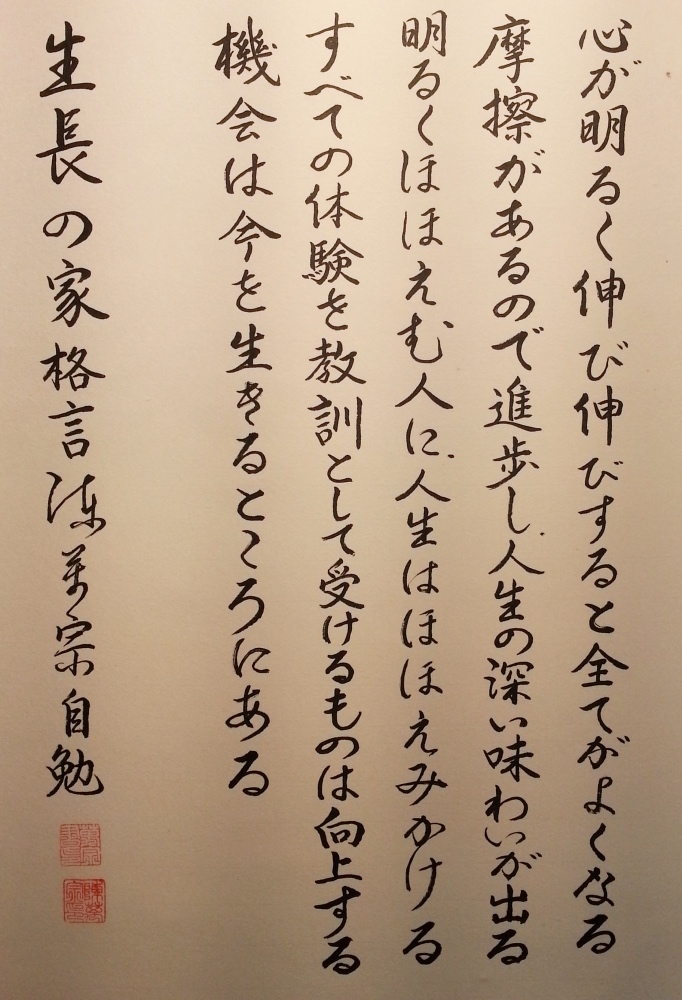 心が明るく伸び伸びすると全てがよくなる
摩擦があるので進歩し、人生の深い味わいが出る
明るくほほえむ人に、人生はほほえみかける
すべての体験を教訓として受けるものは向上する
機会は今を生きるところにある
生長の家格言 陳萬宗自勉